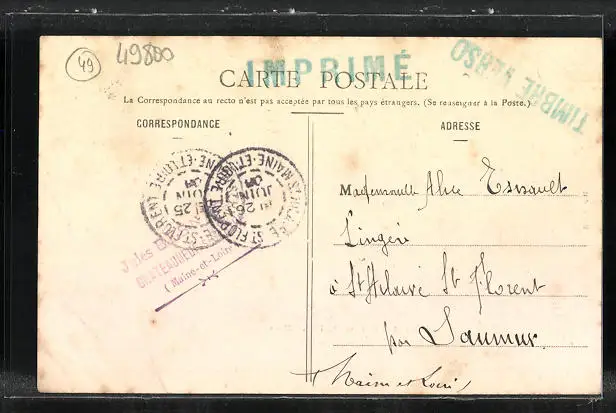 49
49800
IMPRIMÉ
TIMBRE VERSO
CARTE POSTALE
La Correspondance au recto n'est pas acceptée par tous les pays étrangers. (Se renseigner à la Poste.)
CORRESPONDANCE
ADRESSE
ST HILAIRE ST FLORENT MAINE-ET-LOIRE
25
JUIN
26
JUIN
(Maine-et-Loire)
Mademoiselle Alice
Lingère
à St Hilaire St Florent
par Saumur
Maine et Loire